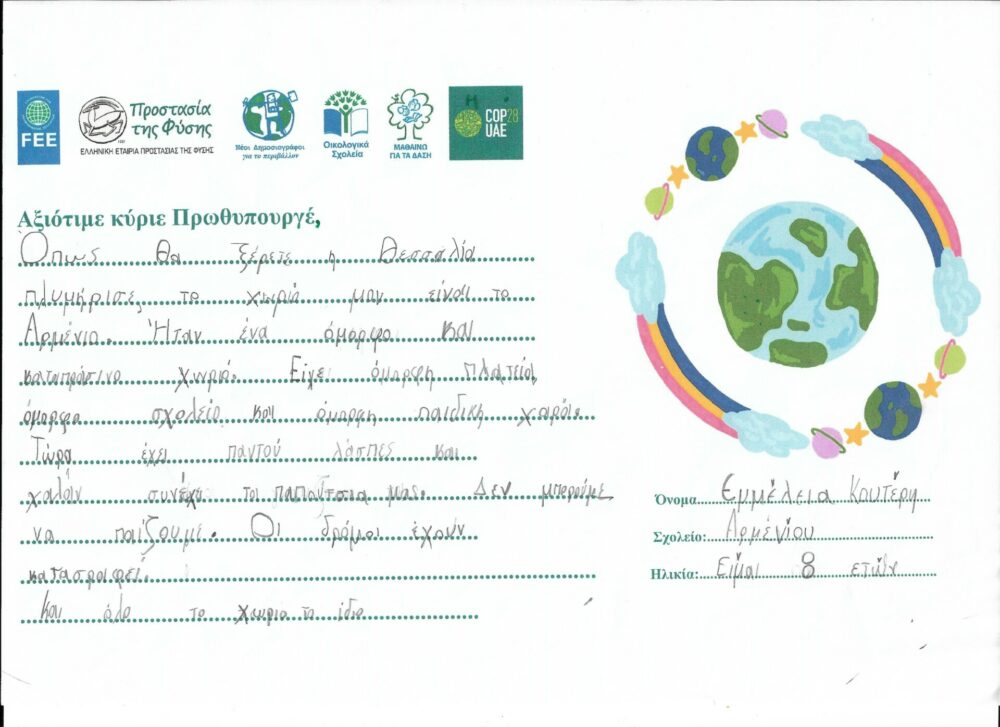 FEE
Προστασία
της Φύσης
ΕΛΛΗΝΙΚΗ ΕΤΑΙΡΙΑ ΠΡΟΣΤΑΣΙΑΣ ΤΗΣ ΦΥΣΗΣ
Νέοι Δημοσιογράφοι
για το περιβάλλον
Οικολογικά
Σχολεία
ΜΑΘΑΙΝΩ
ΓΙΑ ΤΑ ΔΑΣΗ
COP28
UAE
Αξιότιμε κύριε Πρωθυπουργέ,
Όπως θα ξέρετε η Θεσσαλία
πλυμήρισε, το χωριό μου είναι το
Αρμένιο. Ήταν ένα όμορφο και
καταπράσινο χωριό. Είχε όμορφη πλατεία,
όμορφο σχολείο και όμορφη παιδική χαρά.
Τώρα έχει παντού λάσπες και
χαλάν συνέχα τα παπούτσια μας. Δεν μπορούμε
να παίζουμε. Οι δρόμοι έχουν
καταστραφεί.
Και όλο το χωριο το ίδιο
Όνομα Εμμέλεια Κουτέρη
Σχολείο: Αρμένιου
Ηλικία: Είμαι 8 ετών